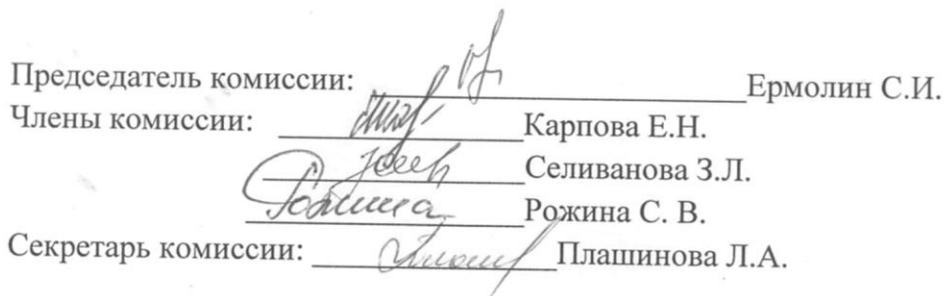 Председатель комиссии: Ермолин С.И.
Члены комиссии: Карпова Е.Н.
Селиванова З.Л.
Рожина С. В.
Секретарь комиссии: Плашинова Л.А.